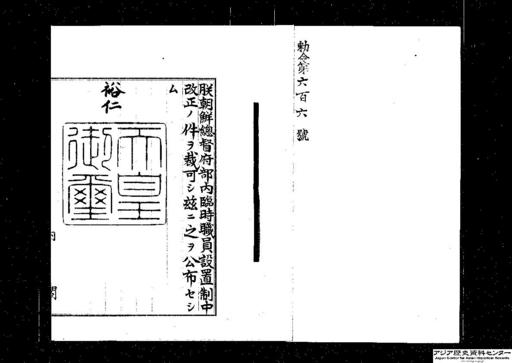 勅令第六百六號
朕朝鮮總督府部內臨時職員設置制中
改正ノ件ヲ裁可シ茲ニ之ヲ公布セシ
ム
裕仁
天皇
御璽
内閣
アジア歴史資料センター
Japan Center for Asian Historical Records